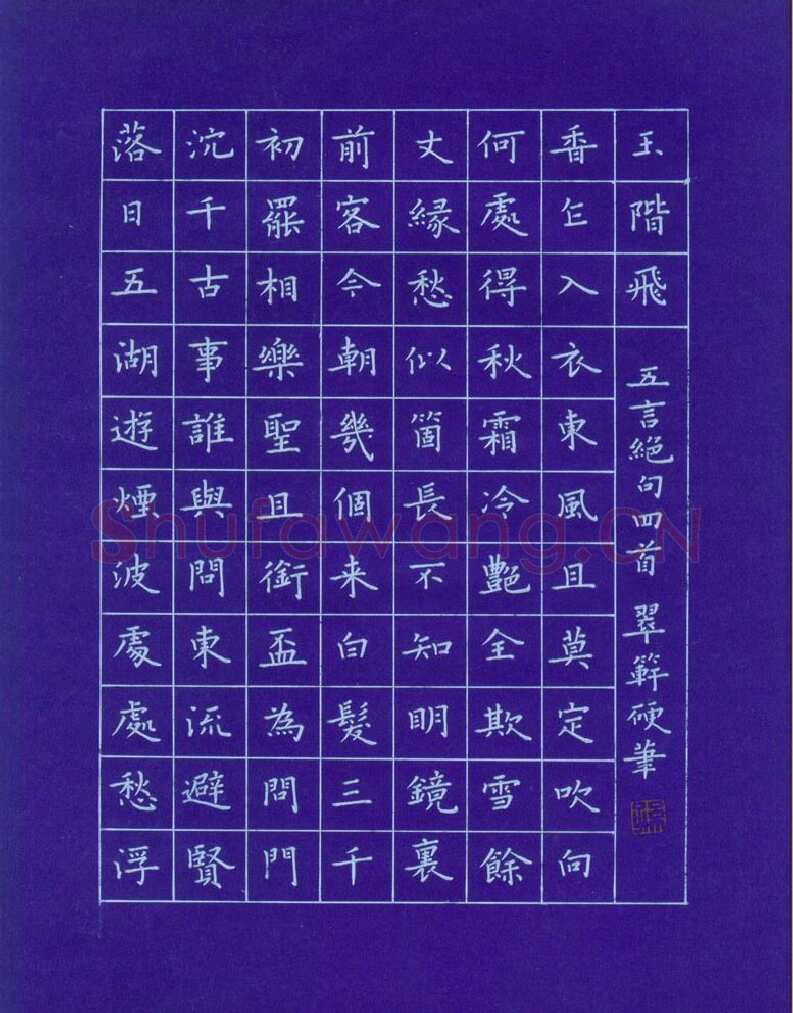 落日五湖遊煙波處處愁浮
沉千古事誰與問東流避賢
初罷相樂聖且銜盃為問門
前客今朝幾個来白髮三千
丈緣愁似箇長不知明鏡裏
何處得秋霜冷艷全欺雪餘
香乍入衣東風且莫定吹向
玉階飛
五言絕句四首 翠硬筆
Shufawang.CN